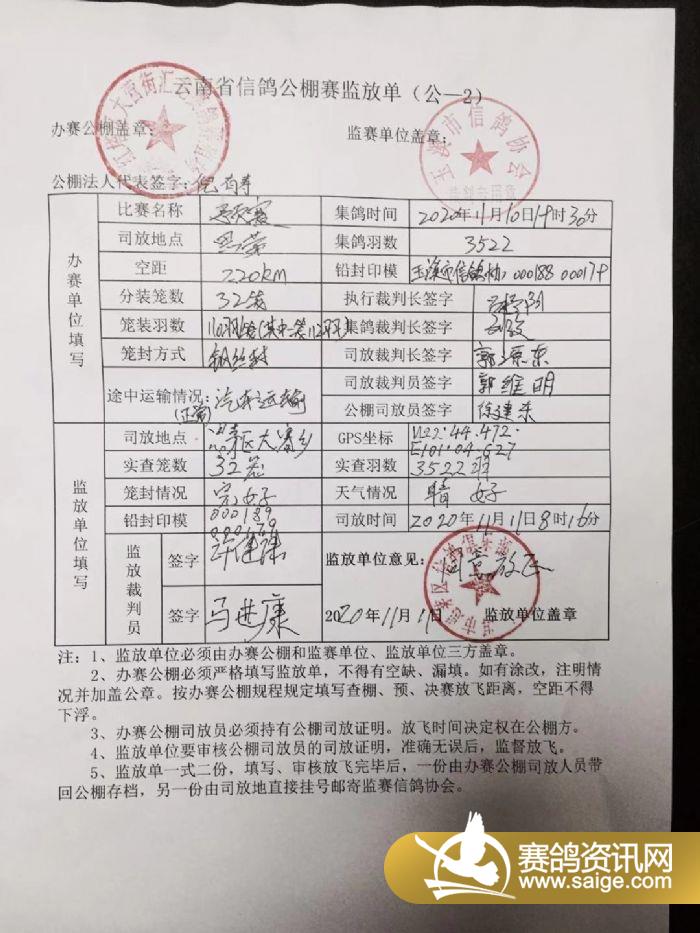 云南省信鸽公棚赛监放单（公—2）
办赛公棚盖章：
监赛单位盖章：
玉溪市信鸽协会
公棚法人代表签字：
办赛单位填写
比赛名称
集鸽时间 2020年11月10日17时30分
司放地点
集鸽羽数 3522
空距 220km
铅封印模 玉溪市信鸽协 000188 000179
分装笼数 32笼
执行裁判长签字
笼装羽数
集鸽裁判长签字
笼封方式 钢丝封
司放裁判长签字 郭源东
途中运输情况：汽车运输
(正常)
司放裁判员签字 郭维明
公棚司放员签字 徐建东
监放单位填写
司放地点
GPS坐标 N22:44.472.
E101:04.627
实查笼数 32笼
实查羽数 3522羽
笼封情况 完好
天气情况 晴 好
铅封印模 000189
000179
司放时间 2020年11月11日8时16分
监放裁判员
签字
监放单位意见：同意放飞
签字 马进康
2020年11月11日 监放单位盖章
注：1、监放单位必须由办赛公棚和监赛单位、监放单位三方盖章。
2、办赛公棚必须严格填写监放单，不得有空缺、漏填。如有涂改，注明情
况并加盖公章。按办赛公棚规程规定填写查棚、预、决赛放飞距离，空距不得
下浮。
3、办赛公棚司放员必须持有公棚司放证明。放飞时间决定权在公棚方。
4、监放单位要审核公棚司放员的司放证明，准确无误后，监督放飞。
5、监放单一式二份，填写、审核放飞完毕后，一份由办赛公棚司放人员带
回公棚存档，另一份由司放地直接挂号邮寄监赛信鸽协会。
赛鸽资讯网
www.saige.com